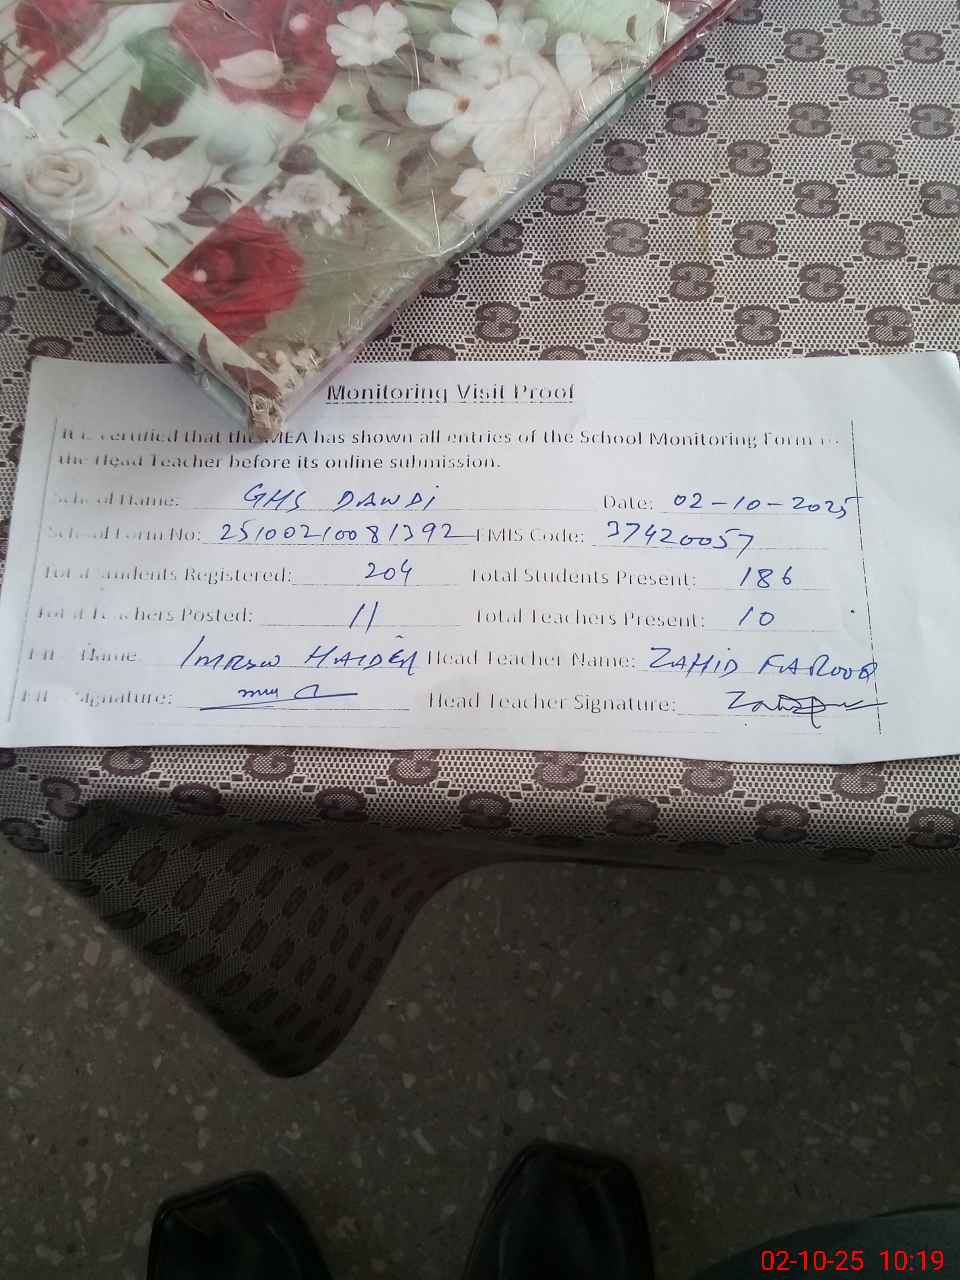 Monitoring Visit Proof
It is certified that the MEA has shown all entries of the School Monitoring Form to
the Head Teacher before its online submission.
School Name: GHS DAWDI Date: 02-10-2025
School Form No: 2510021008 1392 EMIS Code: 37420057
Total Students Registered: 204 Total Students Present: 186
Total Teachers Posted: 11 Total Teachers Present: 10
Name: IMRAN HAIDER Head Teacher Name: ZAHID FAROOQ
Signature: Head Teacher Signature:
02-10-25 10:19